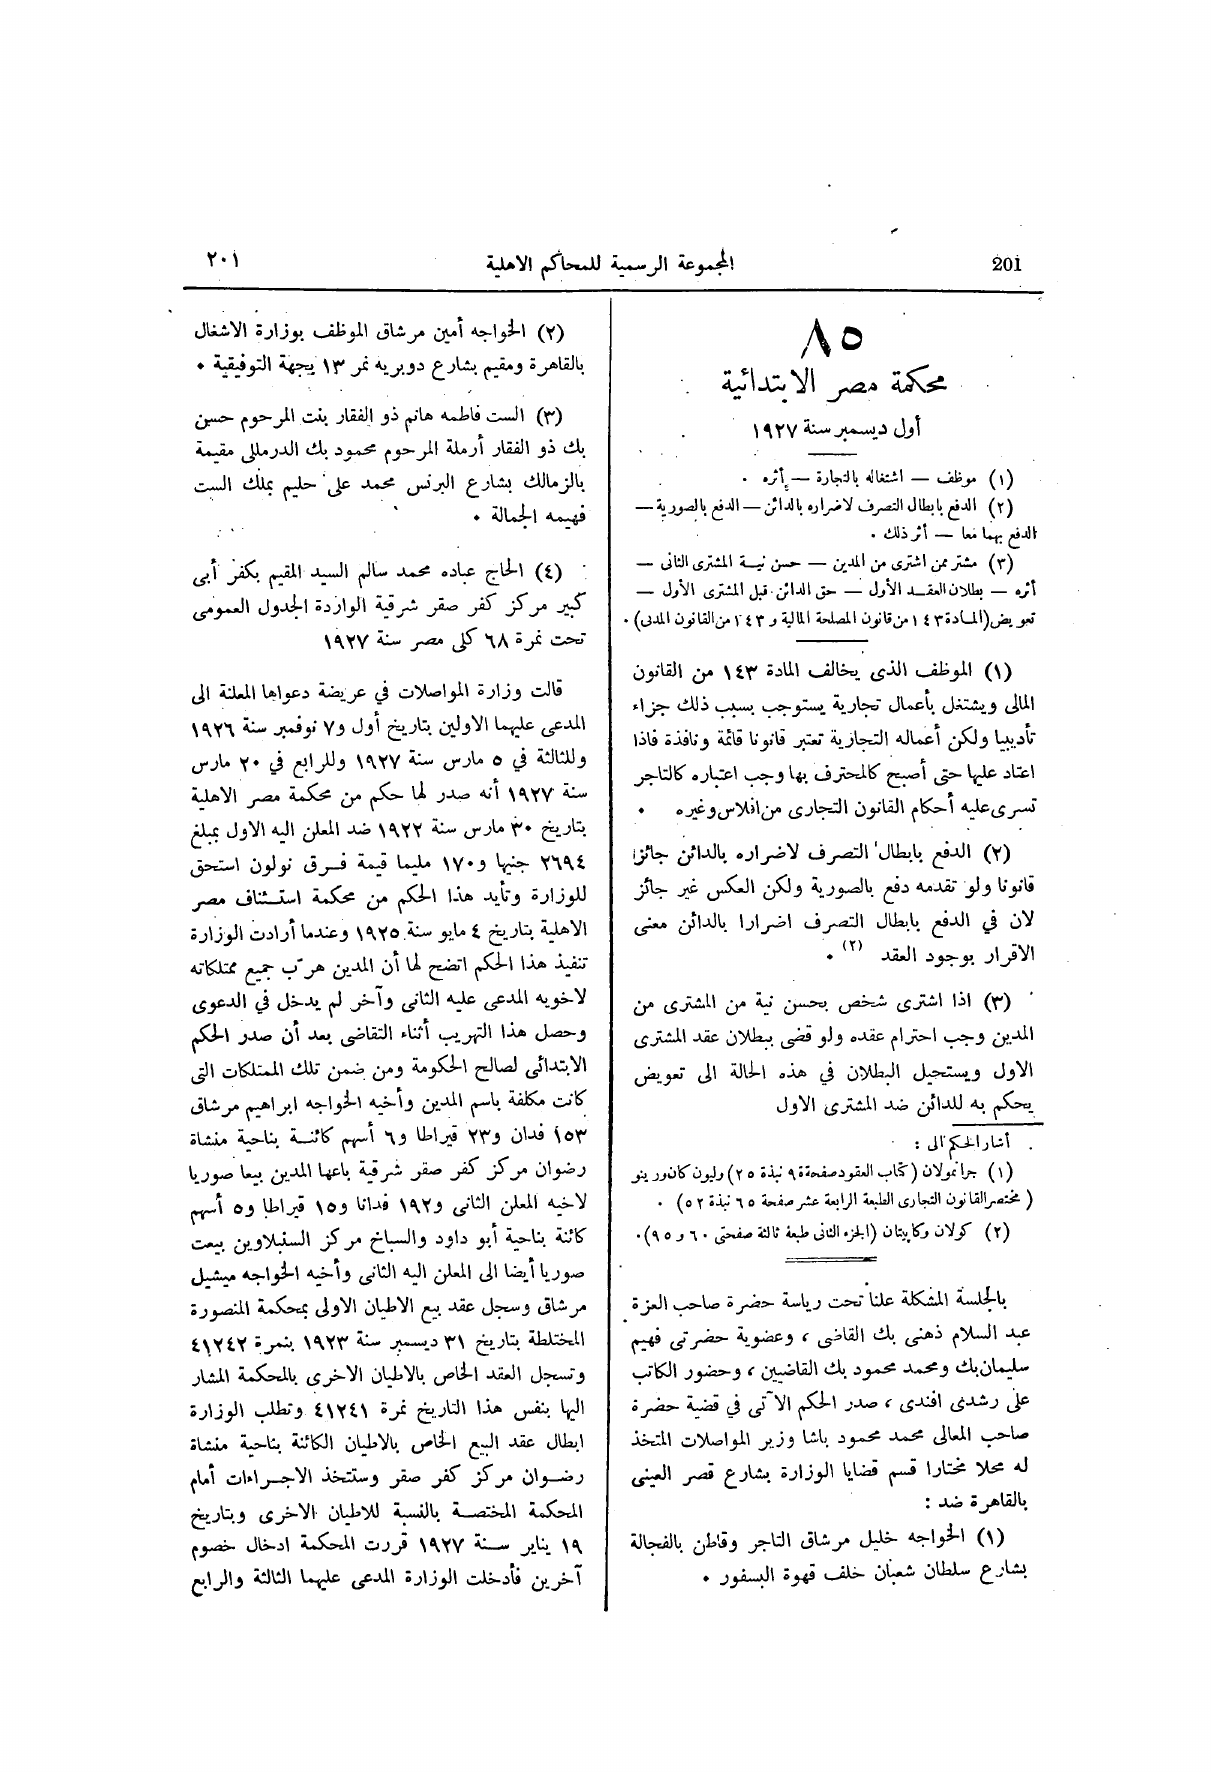 201 المجموعة الرسمية للمحاكم الاهلية ٢٠١
٨٥
محكمة مصر الابتدائية
أول ديسمبر سنة ١٩٢٧
(١) موظف — اشتغاله بالتجارة — أثره .
(٢) الدفع بابطال التصرف لاضراره بالدائن — الدفع بالصورية —
الدفع بهما معا — أثر ذلك .
(٣) مشتر ممن اشترى من المدين — حسن نيـة المشترى الثانى —
أثره — بطلان العقـد الأول — حق الدائن قبل المشترى الأول —
تعويض (المـادة ١٤٣ من قانون المصلحة المالية و ١٤٣ من القانون المدنى) .
(١) الموظف الذى يخالف المادة ١٤٣ من القانون
المالى ويشتغل بأعمال تجارية يستوجب بسبب ذلك جزاء
تأديبيا ولكن أعماله التجارية تعتبر قانونا قائمة ونافذة فاذا
اعتاد عليها حتى أصبح كالمحترف بها وجب اعتباره كالتاجر
تسرى عليه أحكام القانون التجارى من افلاس وغيره .
(٢) الدفع بابطال التصرف لاضراره بالدائن جائز
قانونا ولو تقدمه دفع بالصورية ولكن العكس غير جائز
لان في الدفع بابطال التصرف اضرارا بالدائن معنى
الاقرار بوجود العقد (٢) .
(٣) اذا اشترى شخص بحسن نية من المشترى من
المدين وجب احترام عقده ولو قضى ببطلان عقد المشترى
الاول ويستحيل البطلان في هذه الحالة الى تعويض
يحكم به للدائن ضد المشترى الاول
أشار الحكم الى :
(١) جرانمولان (كتاب العقود صفحة ٩ نبذة ٢٥) وليون كان ورينو
(مختصر القانون التجارى الطبعة الرابعة عشر صفحة ٦٥ نبذة ٥٢) .
(٢) كولان وكابيتان (الجزء الثانى طبعة ثالثة صفحتى ٦٠ و ٩٥) .
بالجلسة المشكلة علنا تحت رياسة حضرة صاحب العزة
عبد السلام ذهنى بك القاضى ، وعضوية حضرتى فهيم
سليمان بك ومحمد محمود بك القاضيين ، وحضور الكاتب
على رشدى افندى ، صدر الحكم الآتى في قضية حضرة
صاحب المعالى محمد محمود باشا وزير المواصلات المتخذ
له محلا مختارا قسم قضايا الوزارة بشارع قصر العينى
بالقاهرة ضد :
(١) الخواجه خليل مرشاق التاجر وقاطن بالفجالة
بشارع سلطان شعبان خلف قهوة البسفور .
(٢) الخواجه أمين مرشاق الموظف بوزارة الاشغال
بالقاهرة ومقيم بشارع دوبريه نمر ١٣ بجهة التوفيقية .
(٣) الست فاطمه هانم ذو الفقار بنت المرحوم حسن
بك ذو الفقار أرملة المرحوم محمود بك الدرمللى مقيمة
بالزمالك بشارع البرنس محمد على حليم بملك الست
فهيمه الجمالة .
(٤) الحاج عباده محمد سالم السيد المقيم بكفر أبى
كبير مركز كفر صقر شرقية الواردة الجدول العمومى
تحت نمرة ٦٨ كلى مصر سنة ١٩٢٧
قالت وزارة المواصلات في عريضة دعواها المعلنة الى
المدعى عليهما الاولين بتاريخ أول و٧ نوفمبر سنة ١٩٢٦
وللثالثة في ٥ مارس سنة ١٩٢٧ وللرابع في ٢٠ مارس
سنة ١٩٢٧ أنه صدر لها حكم من محكمة مصر الاهلية
بتاريخ ٣٠ مارس سنة ١٩٢٢ ضد المعلن اليه الاول بمبلغ
٢٦٩٤ جنيها و١٧٠ مليما قيمة فـرق نولون استحق
للوزارة وتأيد هذا الحكم من محكمة استـئناف مصر
الاهلية بتاريخ ٤ مايو سنة ١٩٢٥ وعندما أرادت الوزارة
تنفيذ هذا الحكم اتضح لها أن المدين هرّب جميع ممتلكاته
لاخويه المدعى عليه الثانى وآخر لم يدخل في الدعوى
وحصل هذا التهريب أثناء التقاضى بعد أن صدر الحكم
الابتدائى لصالح الحكومة ومن ضمن تلك الممتلكات التى
كانت مكلفة باسم المدين وأخيه الخواجه ابراهيم مرشاق
١٥٣ فدان و٢٣ قيراطا و٦ أسهم كائنـة بناحية منشاة
رضوان مركز كفر صقر شرقية باعها المدين بيعا صوريا
لاخيه المعلن الثانى و١٩٢ فدانا و١٥ قيراطا و٥ أسهم
كائنة بناحية أبو داود والسباخ مركز السنبلاوين بيعت
صوريا أيضا الى المعلن اليه الثانى وأخيه الخواجه ميشيل
مرشاق وسجل عقد بيع الاطيان الاولى بمحكمة المنصورة
المختلطة بتاريخ ٣١ ديسمبر سنة ١٩٢٣ بنمرة ٤١٢٤٢
وتسجل العقد الخاص بالاطيان الاخرى بالمحكمة المشار
اليها بنفس هذا التاريخ نمرة ٤١٢٤١ وتطلب الوزارة
ابطال عقد البيع الخاص بالاطيان الكائنة بناحية منشاة
رضـوان مركز كفر صقر وستتخذ الاجـراءات أمام
المحكمة المختصـة بالنسبة للاطيان الاخرى وبتاريخ
١٩ يناير سـنة ١٩٢٧ قررت المحكمة ادخال خصوم
آخرين فأدخلت الوزارة المدعى عليهما الثالثة والرابع